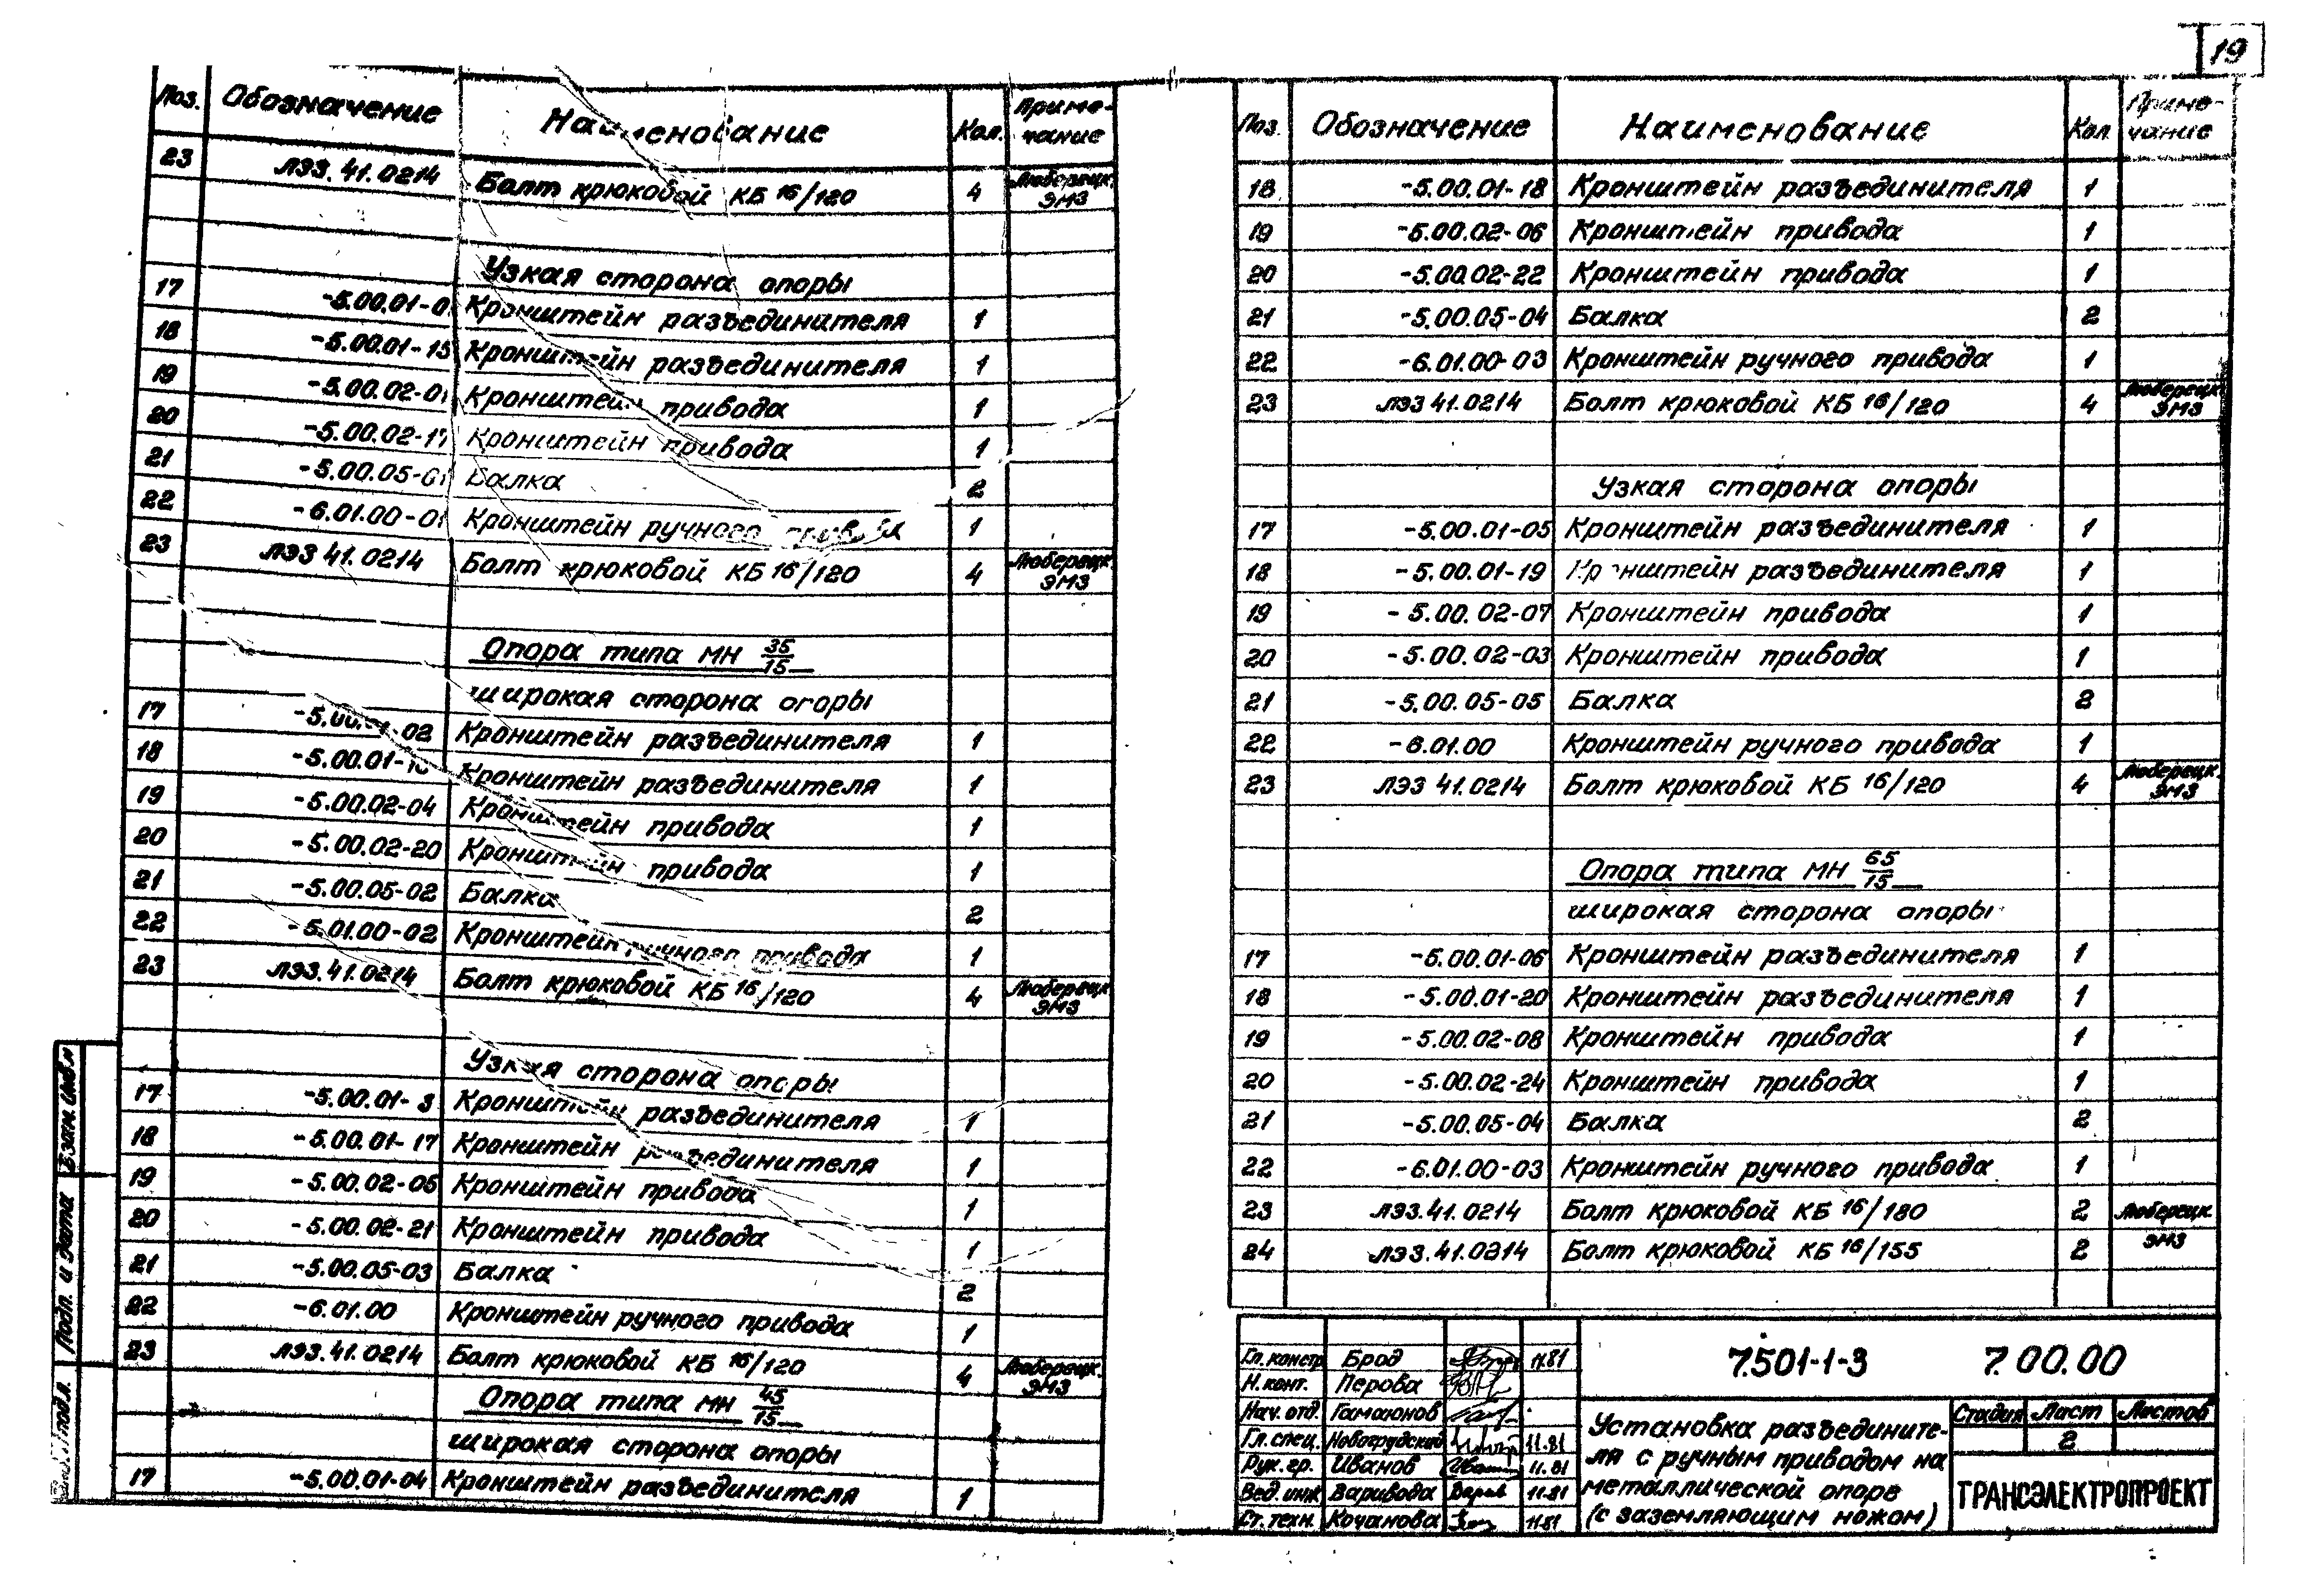 19
Поз. Обозначение Наименование Кол. Примечание
23 ЛЭЗ.41.0214 Болт крюковой КБ 16/120 4 Люберецк. ЭМЗ
Узкая сторона опоры
17 -5.00.01-0 Кронштейн разъединителя 1
18 -5.00.01-15 Кронштейн разъединителя 1
19 -5.00.02-01 Кронштейн привода 1
20 -5.00.02-17 Кронштейн привода 1
21 -5.00.05-01 Балка 2
22 -6.01.00-01 Кронштейн ручного привода 1
23 ЛЭЗ 41.0214 Болт крюковой КБ 16/120 4 Люберецк. ЭМЗ
Опора типа МН 35/15
широкая сторона опоры
17 -5.00.01-02 Кронштейн разъединителя 1
18 -5.00.01-1 Кронштейн разъединителя 1
19 -5.00.02-04 Кронштейн привода 1
20 -5.00.02-20 Кронштейн привода 1
21 -5.00.05-02 Балка 2
22 -5.01.00-02 Кронштейн ручного привода 1
23 ЛЭЗ.41.0214 Болт крюковой КБ 16/120 4 Люберецк ЭМЗ
Узкая сторона опоры
17 -5.00.01- 3 Кронштейн разъединителя 1
18 -5.00.01-17 Кронштейн разъединителя 1
19 -5.00.02-05 Кронштейн привода 1
20 -5.00.02-21 Кронштейн привода 1
21 -5.00.05-03 Балка 2
22 -6.01.00 Кронштейн ручного привода 1
23 ЛЭЗ.41.0214 Болт крюковой КБ 16/120 4 Люберецк. ЭМЗ
Опора типа МН 45/15
широкая сторона опоры
17 -5.00.01-04 Кронштейн разъединителя 1
Поз. Обозначение Наименование Кол. Примечание
18 -5.00.01-18 Кронштейн разъединителя 1
19 -5.00.02-06 Кронштейн привода 1
20 -5.00.02-22 Кронштейн привода 1
21 -5.00.05-04 Балка 2
22 -6.01.00-03 Кронштейн ручного привода 1
23 ЛЭЗ 41.0214 Болт крюковой КБ 16/120 4 Люберецк ЭМЗ
Узкая сторона опоры
17 -5.00.01-05 Кронштейн разъединителя 1
18 -5.00.01-19 Кронштейн разъединителя 1
19 -5.00.02-07 Кронштейн привода 1
20 -5.00.02-03 Кронштейн привода 1
21 -5.00.05-05 Балка 2
22 -6.01.00 Кронштейн ручного привода 1
23 ЛЭЗ 41.0214 Болт крюковой КБ 16/120 4 Люберецк. ЭМЗ
Опора типа МН 65/15
широкая сторона опоры
17 -5.00.01-06 Кронштейн разъединителя 1
18 -5.00.01-20 Кронштейн разъединителя 1
19 -5.00.02-08 Кронштейн привода 1
20 -5.00.02-24 Кронштейн привода 1
21 -5.00.05-04 Балка 2
22 -6.01.00-03 Кронштейн ручного привода 1
23 ЛЭЗ.41.0214 Болт крюковой КБ 16/180 2 Люберецк.
24 ЛЭЗ.41.0214 Болт крюковой КБ 16/155 2 ЭМЗ
Гл. констр Брод 11.81
Н. конт. Перова
Нач. отд. Гамаюнов
Гл. спец. Новогрудский 11.81
Рук. гр. Иванов 11.81
Вед. инж Варивода 11.81
Ст. техн. Кочанова 11.81
7.501-1-3 7.00.00
Установка разъедините-
ля с ручным приводом на
металлической опоре
(с заземляющим ножом)
Стадия Лист Листов
2
ТРАНСЭЛЕКТРОПРОЕКТ
Взам. инв. №
Подп. и дата
подл.